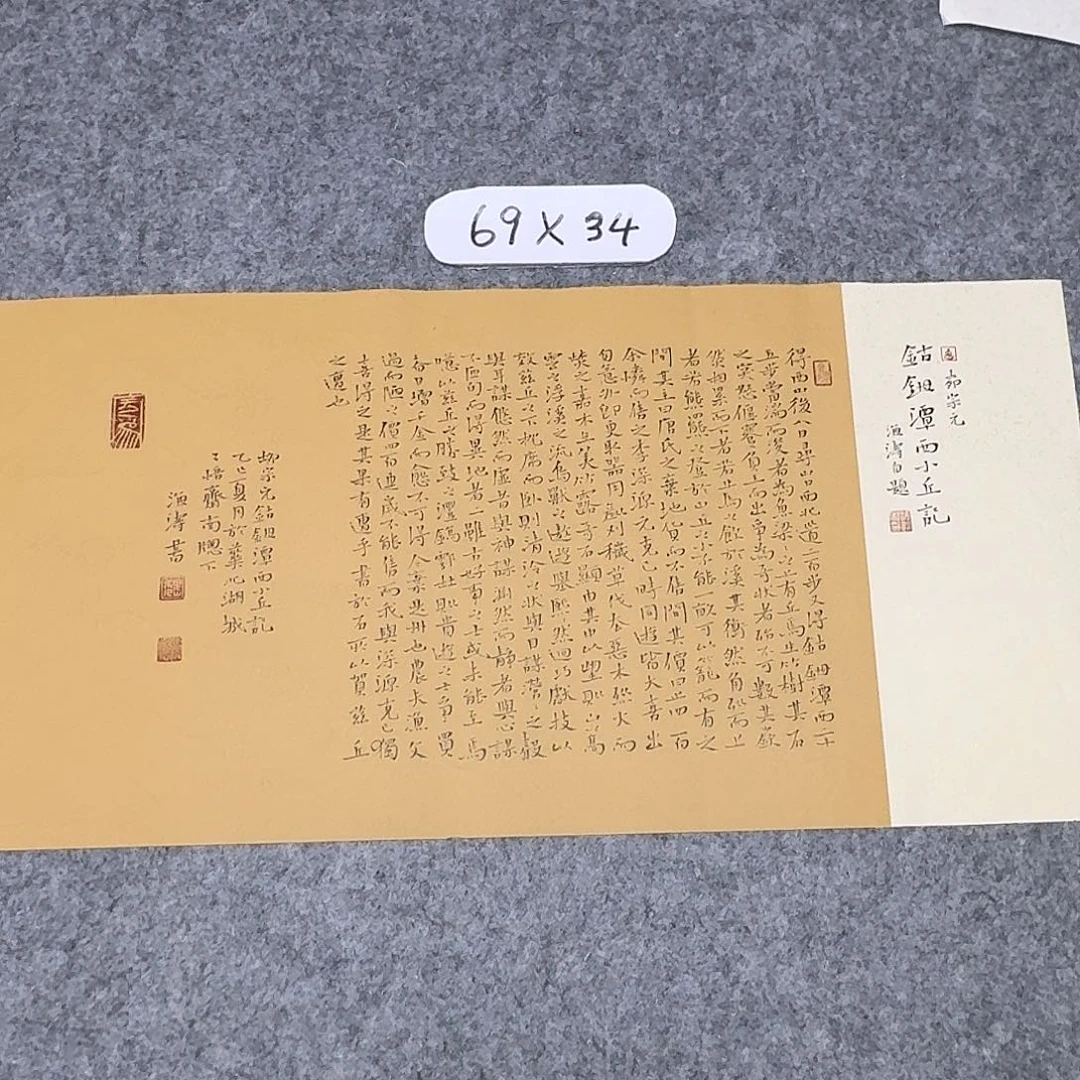 鈷鉧潭西小丘記
柳宗元
濤自題
得西山後八日尋山口西北道二百步又得鈷鉧潭西二十
五步當湍而浚者為魚梁梁之上有丘焉生竹樹其石
之突怒偃蹇負土而出爭為奇狀者殆不可數其嶔
然相累而下者若牛馬之飲於溪其衝然角列而上
者若熊羆之登於山丘之小不能一畝可以籠而有之
問其主曰唐氏之棄地貨而不售問其價曰止四百
余憐而售之李深源元克己時同遊皆大喜出
自意外即更取器用剷刈穢草伐去惡木烈火而
焚之嘉木立美竹露奇石顯由其中以望則山高
雲之浮溪之流鳥獸之遨遊舉熙熙然迴巧獻技以
效茲丘之下枕席而臥則清泠之狀與目謀瀯瀯之聲
與耳謀悠然而虛者與神謀淵然而靜者與心謀
不匝旬而得異地者二雖古好事之士或未能至焉
噫以茲丘之勝致之灃鎬鄠杜則貴遊之士爭買
者日增千金而愈不可得今棄是州也農夫漁父
過而陋之價四百連歲不能售而我與深源克己獨
喜得之是其果有遭乎書於石所以賀茲丘
之遭也
柳宗元鈷鉧潭西小丘記
乙巳夏月於巢北湖城
了悟齋南窗下
濤書
69×34